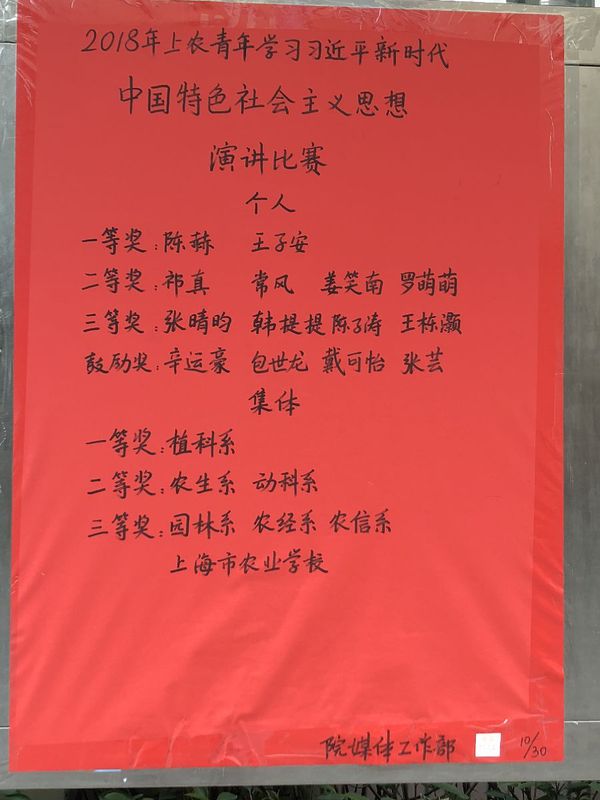 2018年上农青年学习习近平新时代
中国特色社会主义思想
演讲比赛
个人
一等奖:陈赫 王子安
二等奖:祁真 常风 姜笑南 罗萌萌
三等奖:张晴昀 韩提提 陈子涛 王栋灏
鼓励奖:辛运豪 包世龙 戴可怡 张芸
集体
一等奖:植科系
二等奖:农生系 动科系
三等奖:园林系 农经系 农信系
上海市农业学校
院媒体工作部 10/30